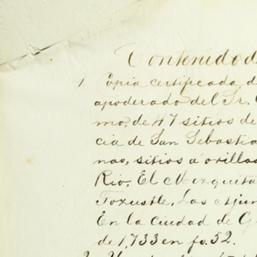 Contenido d
1 Copia certificada d
apoderado del Sr.
mo, de 47 sitios de
cia de San Sebastia
nas, sitios a orillas
Rio. El Mezquita
Las adjun
En la ciudad de G
de 1,733 en fo. 52.